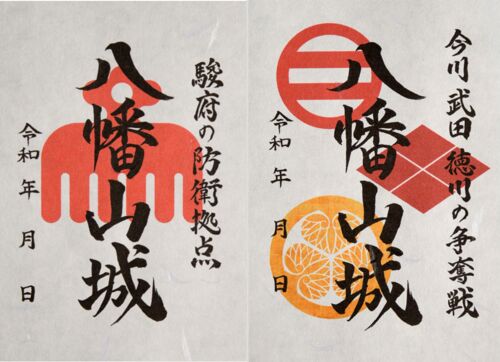 駿府の防衛拠点
八幡山城
令和 年 月 日
今川 武田 徳川の争奪戦
八幡山城
令和 年 月 日